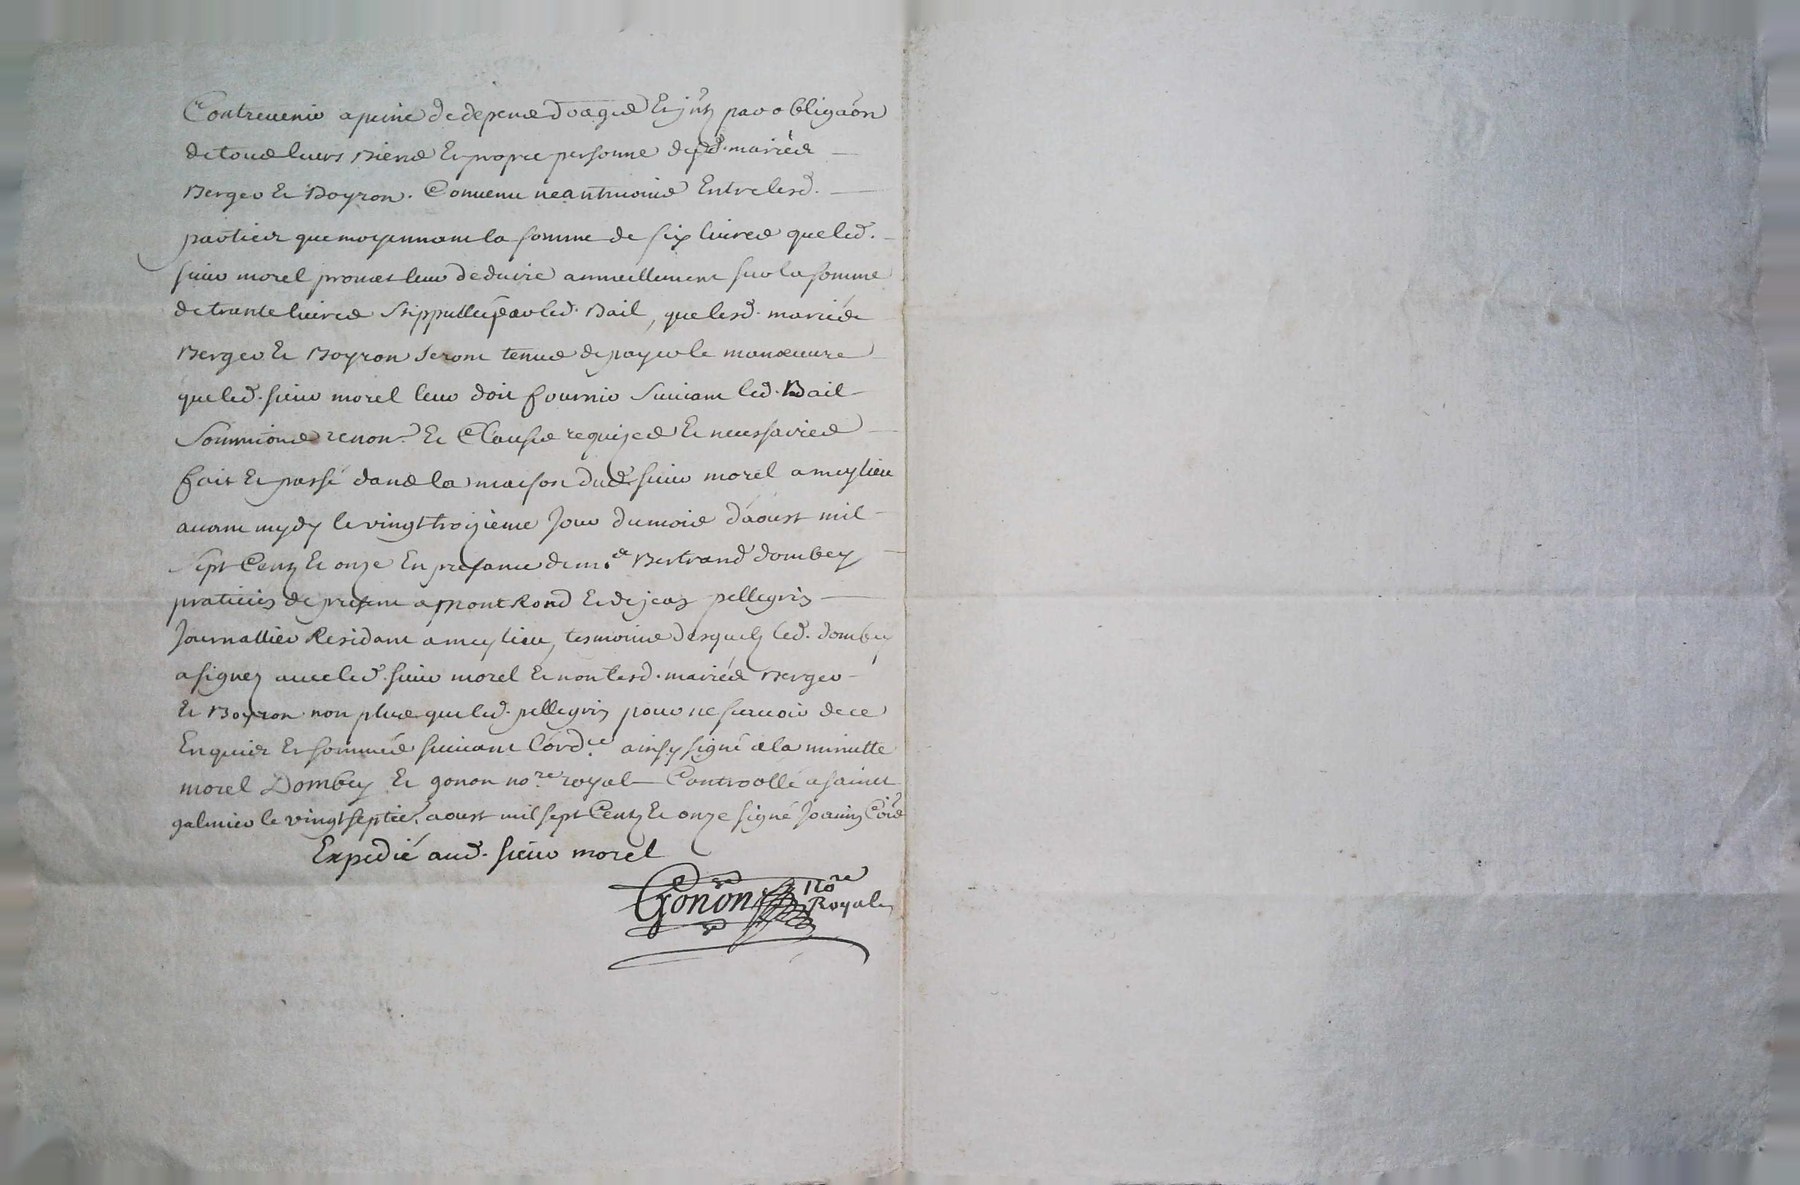 Contrevenir a peine de depens domages Et jntz par obligãon
de tous leurs Biens Et propre personne desd. mariés
Berger Et Boyron. Convenu neantmoins Entre lesd.
parties que moyennant la somme de six livres que led.
sieur morel promet leur deduire annuellement sur la somme
de trante livres Stippullée par led. Bail, que lesd. mariés
Berger Et Boyron seront tenus de payer le manoeuvre
que led. sieur morel leur doit fournir suivant led. Bail
Soumions renon.ons Et Clauses requizes Et necessaires
fait Et passé dans la maison dud. sieur morel a meylieu
avant mydy le vingt troizieme Jour du mois d'aoust mil
sept Centz Et onze En presance de m.e Bertrand dombey
praticien de presant a Montrond Et de jean pellegrin
Journallier Residant a meylieu tesmoins desquelz led. dombey
a signez avec led. sieur morel Et non lesd. mariés Berger
Et Boyron non plus que led. pellegrin pour ne scavoir de ce
Enquis Et sommés suivant l'ord.ce ainsy signé a la minutte
morel Dombey Et gonon no.re royal Controollé a sainct
galmier le vingt septie. aoust mil sept Centz Et onze signé Joanin
Expedié aud. sieur morel
Gonon No.re
Royal